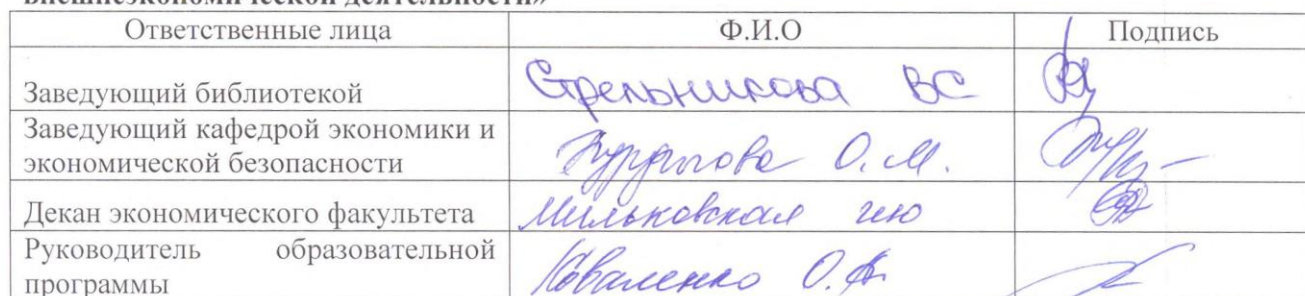 внешнеэкономической деятельности»
Ответственные лица Ф.И.О Подпись
Заведующий библиотекой Стрельникова ВС
Заведующий кафедрой экономики и
экономической безопасности О.М.
Декан экономического факультета Мильковская
Руководитель образовательной
программы Коваленко О.А.